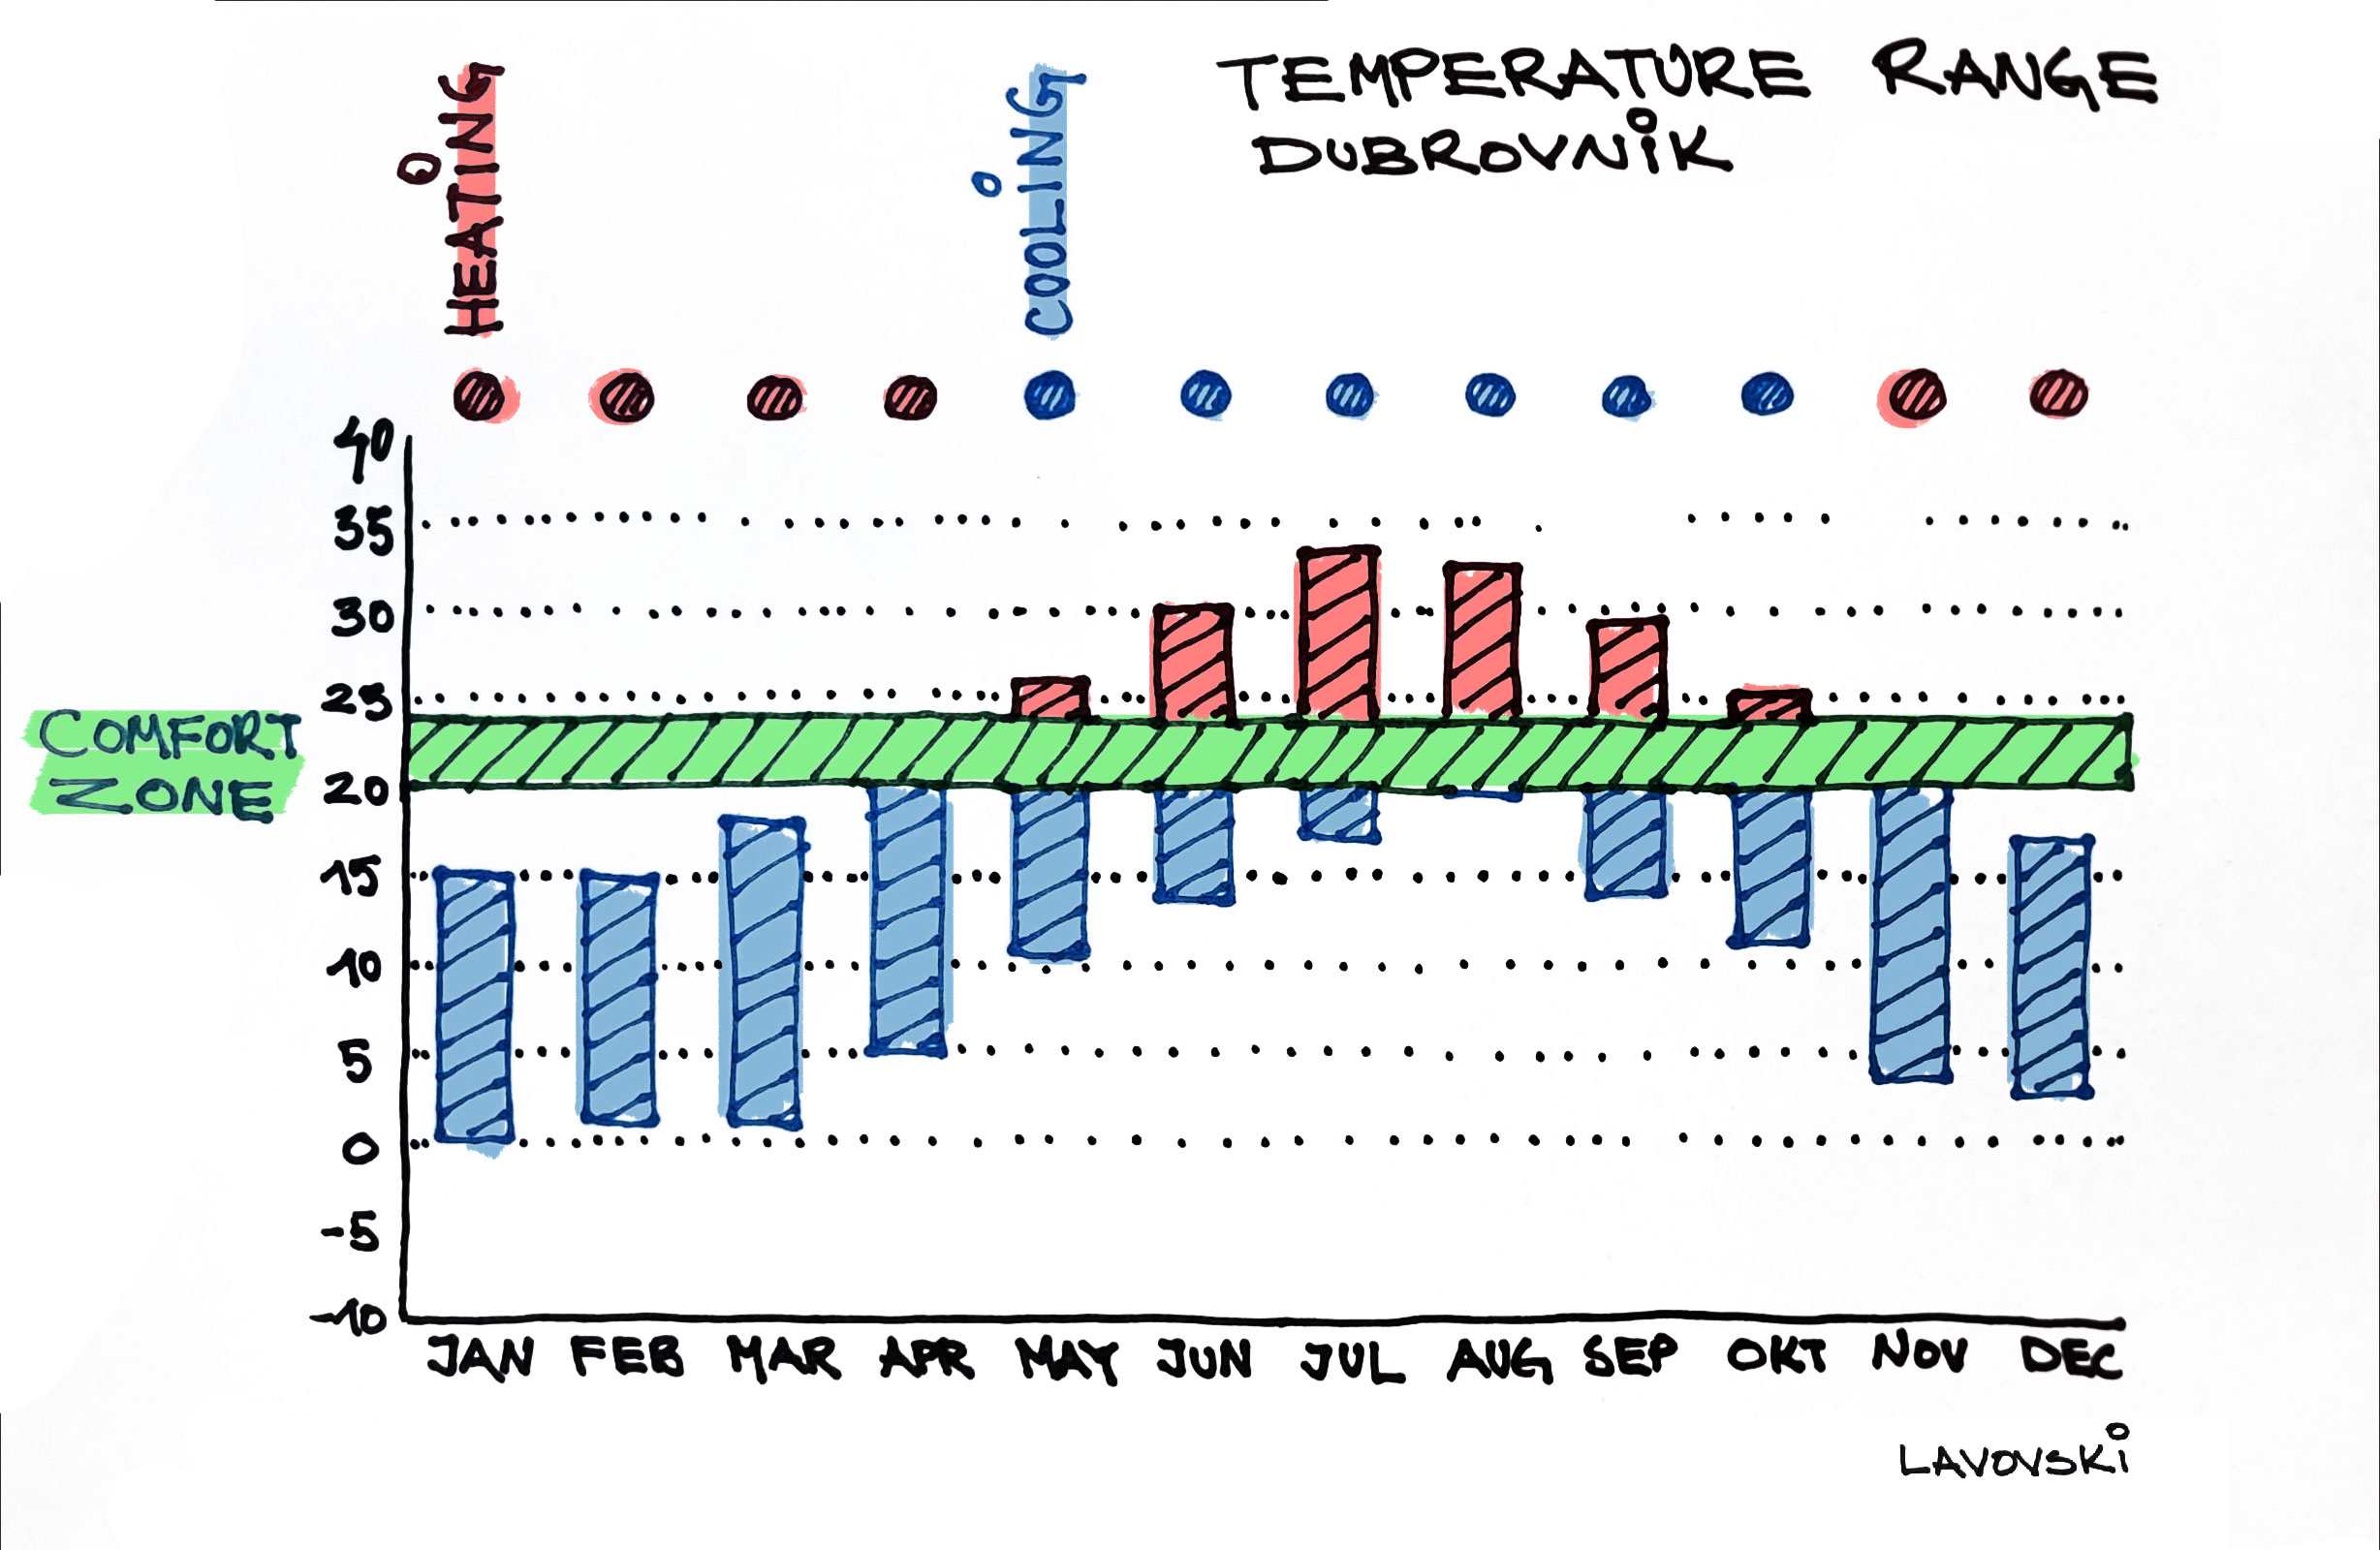 TEMPERATURE RANGE
DUBROVNIK
HEATING
COOLING
40
35
30
25
20
15
10
5
0
-5
-10
COMFORT
ZONE
JAN FEB MAR APR MAY JUN JUL AUG SEP OKT NOV DEC
LAVOVSKI